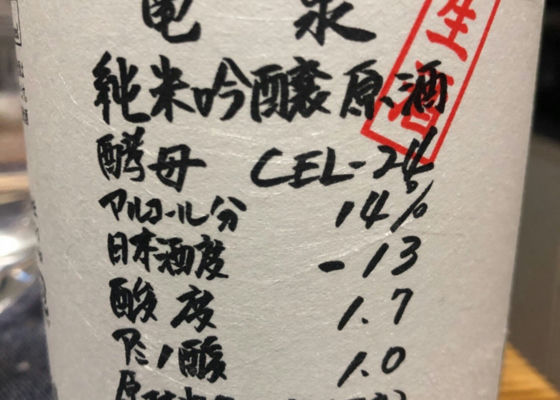 亀泉
生酒
純米吟醸原酒
酵母 CEL-24
アルコール分 14%
日本酒度 -13
酸度 1.7
アミノ酸 1.0